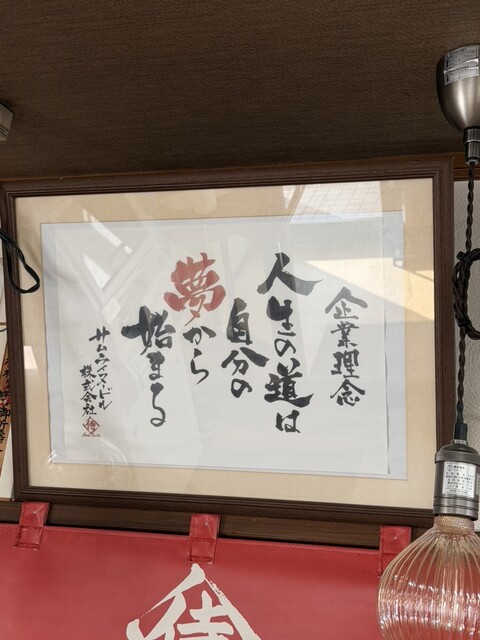 企業理念
人生の道は
自分の
夢から
始まる
サムライス・ビル
株式会社
侍
侍